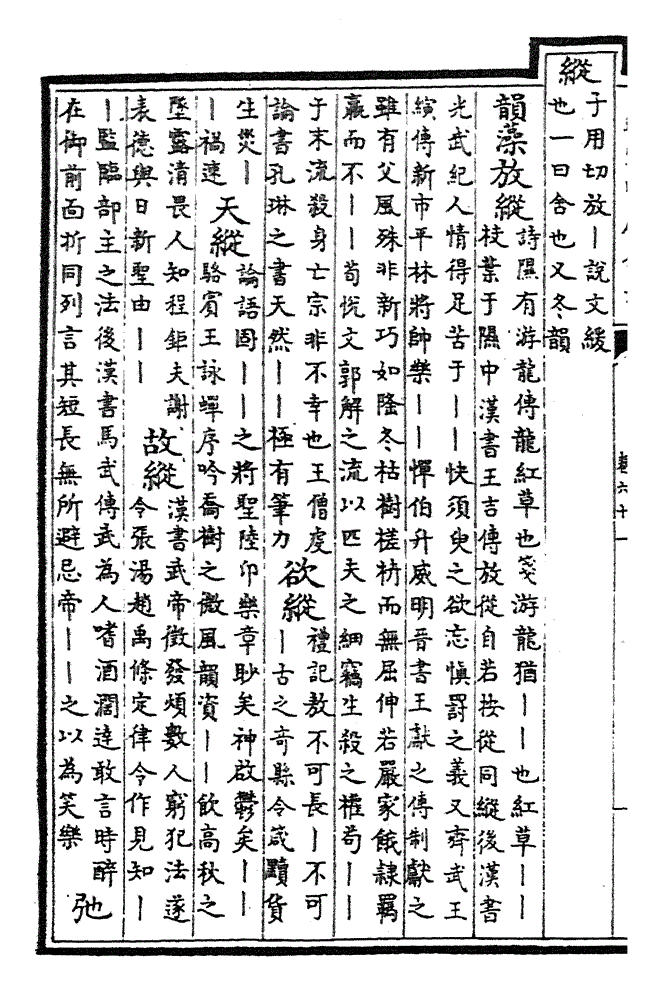 縱
子用切放丨說文緩
也一曰舍也又冬韻
韻藻放縱
詩隰有游龍傳龍紅草也箋游龍猶丨丨也紅草丨丨
枝葉于隰中漢書王吉傳放從自若按從同縱後漢書
光武紀人情得足苦于丨丨快須臾之欲忘慎罰之義又齊武王
縯傳新市平林將帥樂丨丨憚伯升威明晉書王獻之傳制獻之
雖有父風殊非新巧如隆冬枯樹槎枿而無屈伸若嚴家餓隸羈
羸而不丨丨荀悅文郭解之流以匹夫之細竊生殺之權苟丨丨
于末流殺身亡宗非不幸也王僧虔
論書孔琳之書天然丨丨極有筆力
欲縱
禮記敖不可長丨不可
丨古之奇縣令箴黷貨
生災丨
丨禍速
天縱
論語固丨丨之將聖陸卬樂章眇矣神啟鬱矣丨丨
駱賓王詠蟬序吟喬樹之微風韻資丨丨飲高秋之
墜露清畏人知程鉅夫謝
表德與日新聖由丨丨
故縱
漢書武帝徵發煩數人窮犯法遂
令張湯趙禹條定律令作見知丨
丨監臨部主之法後漢書馬武傳武為人嗜酒闊達敢言時醉
在御前面折同列言其短長無所避忌帝丨丨之以為笑樂
弛
卷六十一